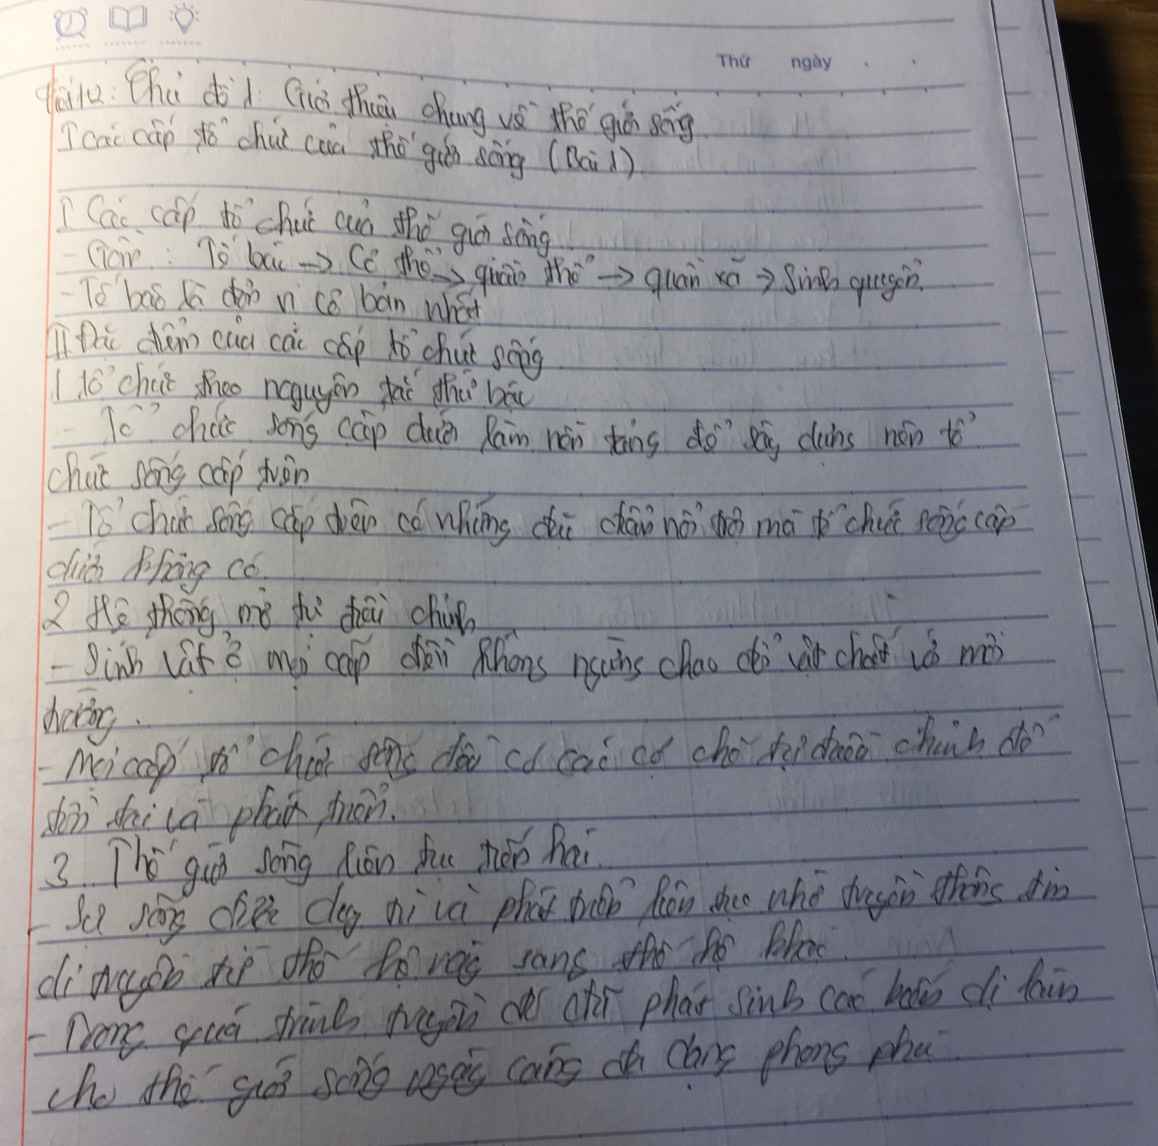 Thứ ngày
Chủ đề 1 Giới thiệu chung về thế giới sống
I các cấp tổ chức của thế giới sống (Bài 1)
I Các cấp tổ chức của thế giới sống
- Gồm : Tế bào → Cơ thể → quần thể → quần xã → Sinh quyển.
- Tế bào là đơn vị cơ bản nhất
II Đặc điểm của các cấp tổ chức sống
1 tổ chức theo nguyên tắc thứ bậc
- Tổ chức sống cấp dưới làm nền tảng để xây dựng nên tổ
chức sống cấp trên
- Tổ chức sống cấp trên có những đặc điểm nổi trội mà tổ chức sống cấp
dưới không có.
2 Hệ thống mở tự điều chỉnh
- Sinh vật ở mọi cấp đều không ngừng trao đổi vật chất với môi
trường.
- Mọi cấp tổ chức sống đều có các cơ chế tự điều chỉnh để
tồn tại và phát triển.
3. Thế giới sống liên tục tiến hoá
- Sự sống được duy trì và phát triển liên tục nhờ truyền thông tin
di truyền từ thế hệ này sang thế hệ khác
- Trong quá trình truyền đạt phát sinh các biến dị làm
cho thế giới sống ngày càng đa dạng phong phú